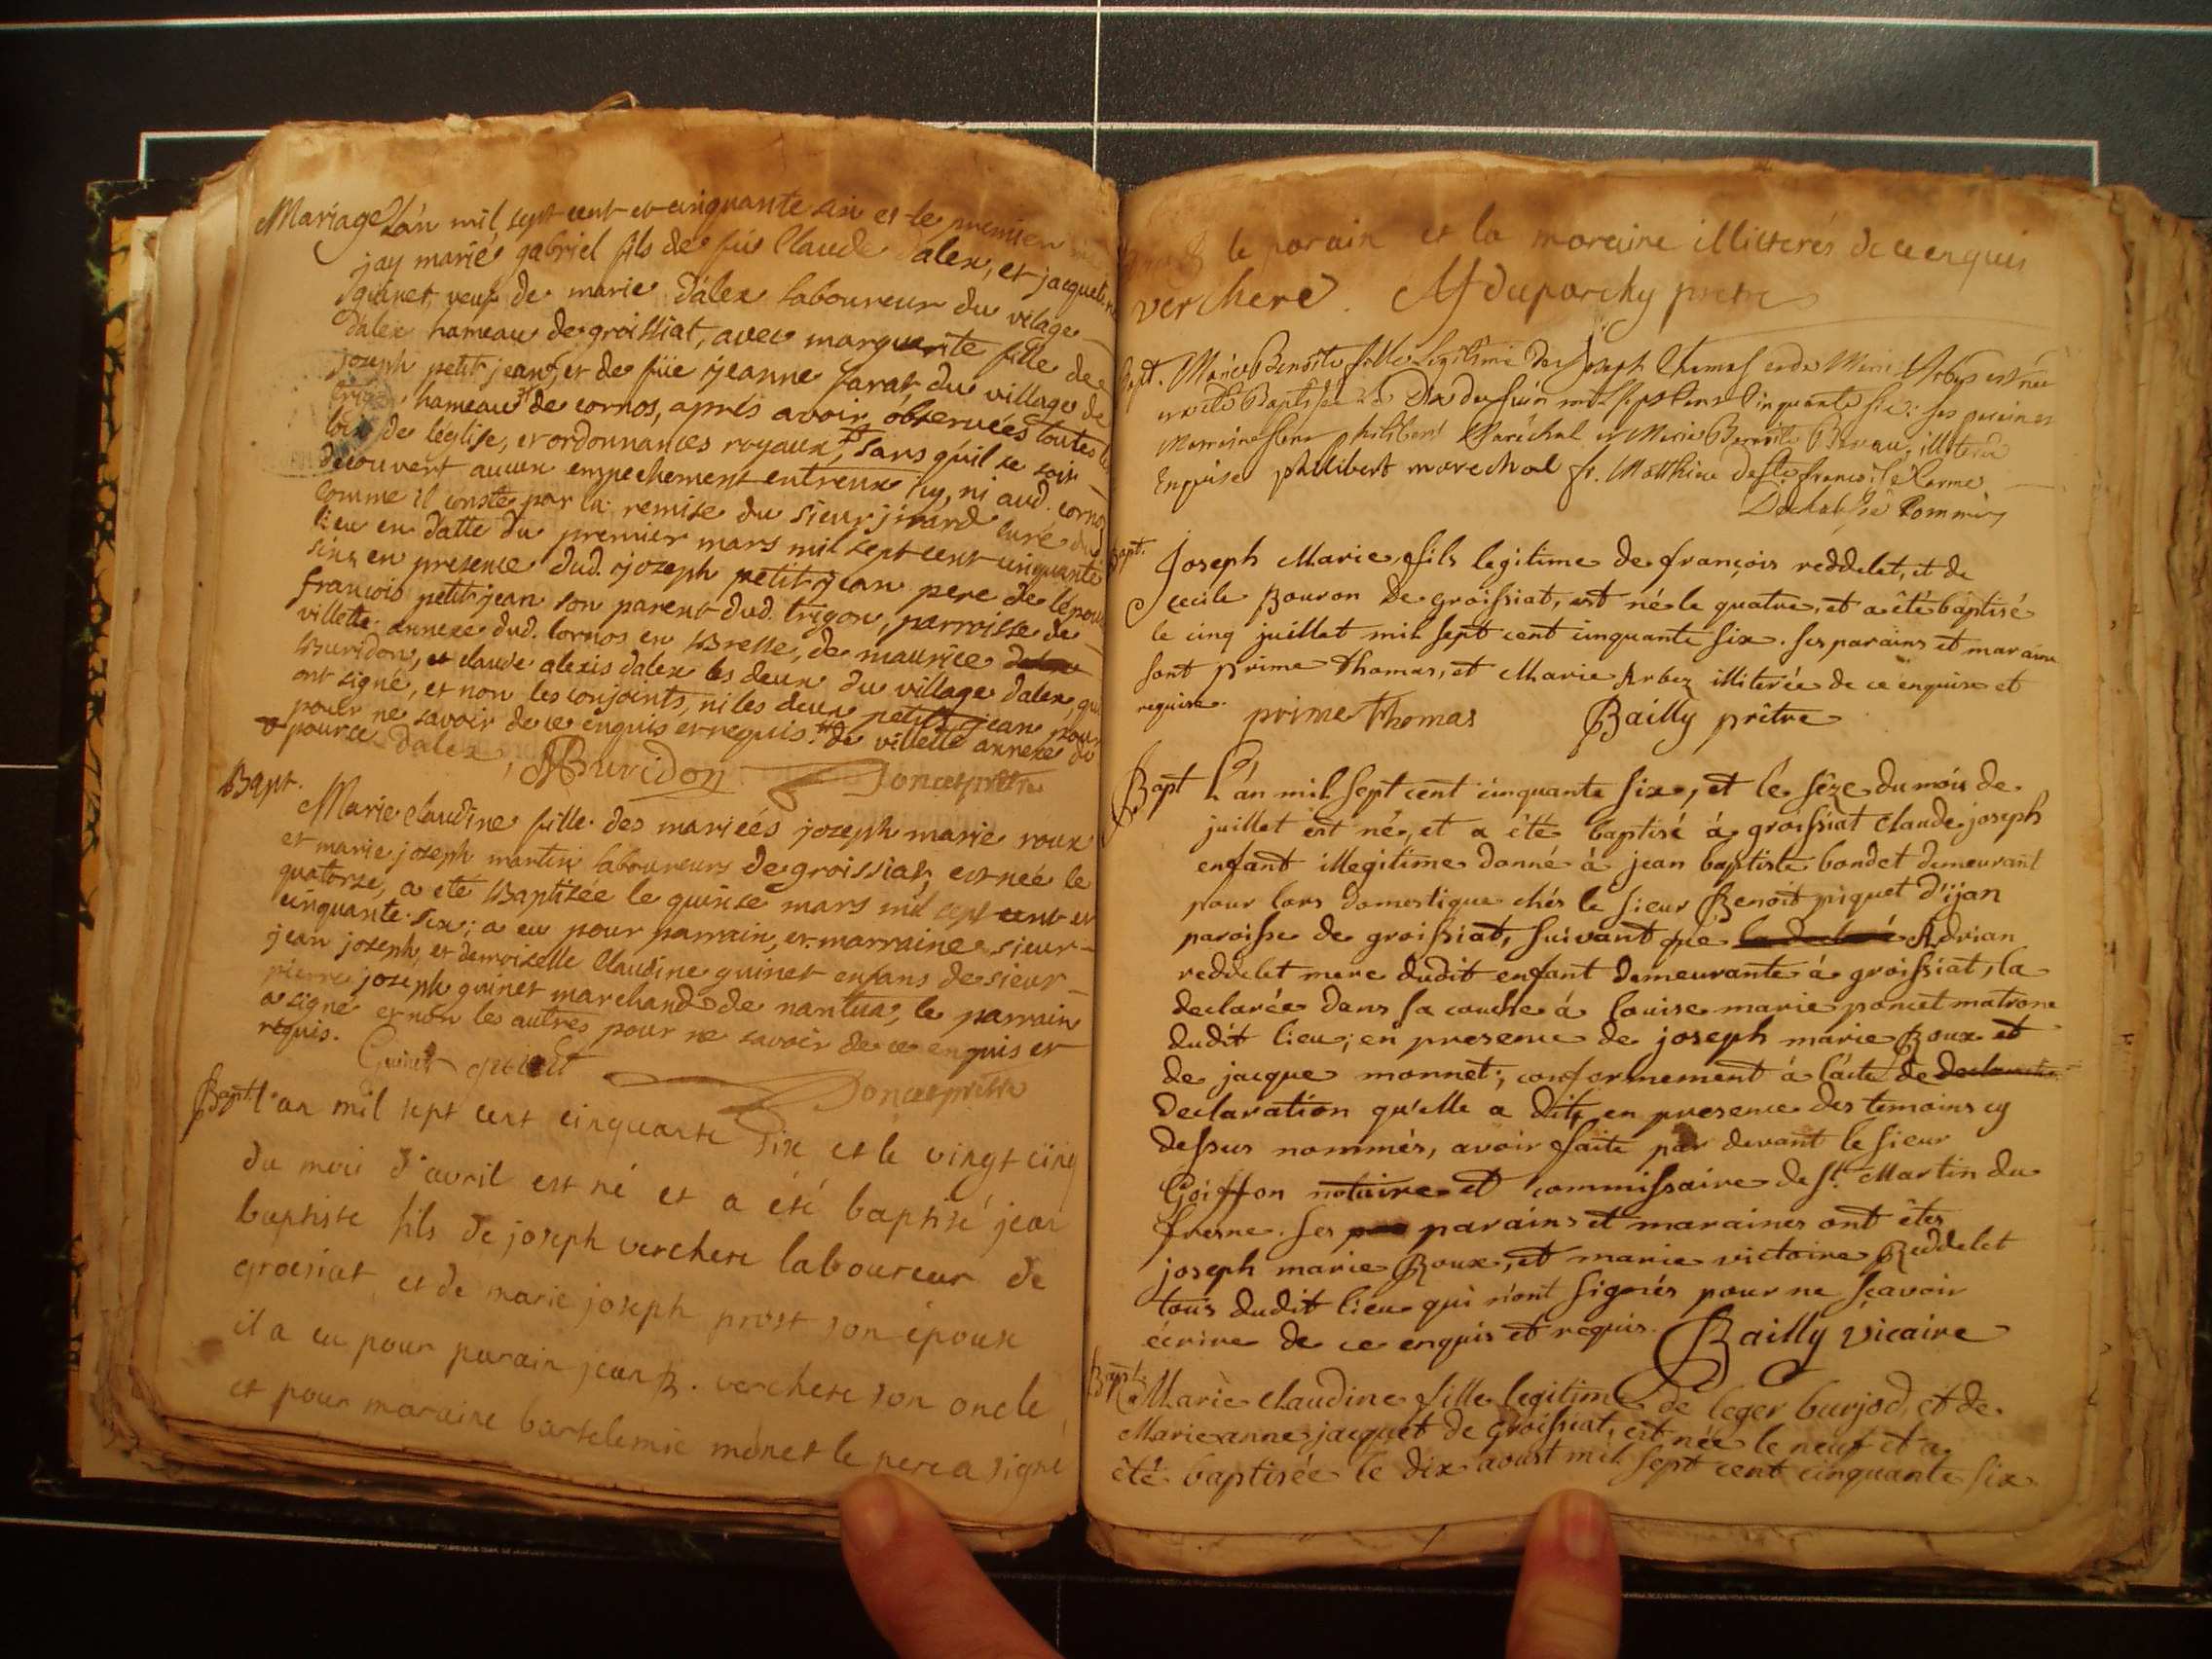 Mariage L'an mil sept cent et cinquante six et le premier
jay marié gabriel fils de fû Claude dalex, et jacqueline
guinet, veuf de marie dalex laboureur du vilage
dalex hameau de groissiat, avec marguerite fille de
joseph petit jean, et de füe jeanne farat, du village de
hameau de cornos, aprés avoir observées toutes les
loix de léglise, et ordonnances royaux, sans qu'il se soit
decouvert aucun empechement entreux icy, ni aud. cornos
comme il conste par la remise du sieur jirard curé dud.
lieu en datte du premier mars mil sept cent cinquante
six, en presence dud. joseph petit jean pere de lépouse
francois petit jean son parent dud. trigon, parroisse de
villette annexe dud. cornos en Bresse, de maurice
Buridon, et claude alexis dalex les deux du village dalex, qui
ont signé, et non les conjoints, ni les deux petit jean pour
pour ne savoir de ce enquis et requis. de villette annexe de
pource dalex, MBuridon Poncet prètre
Bapt.
Marie claudine fille des mariéés jozeph marie roux
et marie joseph martin laboureurs de groissiat, est née le
quatorze, a eté Baptizée le quinze mars mil sept cent et
cinquante six; a eu pour parrain, et marraine sieur
jean joseph, et demoizelle Claudine guinet enfans de sieur
pierre joseph guinet marchand de nantua, le parrain
a signé et non les autres pour ne savoir de ce enquis et
requis. Guinet
Poncet prètre
Bapt. l'an mil sept cent cinquante six et le vingt cinq
du mois d'avril est né et a été baptisé jean
baptiste fils de joseph verchere laboureur de
groisiat et de marie joseph prost son epouse
il a eu pour parain jean B. verchere son oncle
et pour maraine bartelemie mônet le pere a signé
le parain et la maraine illitterés de ce enquis
verchere. Mduparchy pretre
Bapt. Marie Benoite fille legitime de Joseph Thomas et de Marie Arbez est née
et a été Baptisée le dix de juin mil sept cent cinquante six: ses parains et
Marraine sont philibert Maréchal et Marie Benoite Bavau, illiterée
Enquise philibert marechal fr. Matthieu de Ste françoise Carme
Dechaussé Commis
Bapt. Joseph Marie, fils legitime de françois reddelet, et de
cecile Bouron de groissiat, est né le quatre, et a été baptisé
le cinq juillet mil sept cent cinquante six. ses parains et maraine
sont prime thomas, et Marie Arbez illiterée de ce enquise et
requise. prime thomas Bailly prêtre
Bapt L'an mil sept cent cinquante six, et le sèze du mois de
juillet est né, et a été baptisé à groissiat claude joseph
enfant illegitime donné à jean baptiste bondet demeurant
pour lors domestique chés le sieur Benoit piquet d'ijan
paroisse de groissiat, suivant que Adrian
reddelet mere dudit enfant demeurante à groissiat, la
declarée dans sa couche à louise marie poncet matrone
dudit lieu; en presence de joseph marie Roux et
de jacque monnet; conformement à l'acte de
declaration qu'elle a dite, en presence des temoins cy
dessus nommés, avoir faite par devant le sieur
Goiffon notaire et commissaire de St. Martin du
fresne. ses parains et maraines ont êtes
joseph marie Roux, et marie victoire Reddelet
tous dudit lieu qui n'ont signés pour ne sçavoir
écrire de ce enquis et requis. Bailly vicaire
Bapt. Marie claudine fille legitime de leger burjod, et de
Marie anne jacquet de groissiat, est née le neuf et a
été baptisée le dix aoust mil sept cent cinquante six